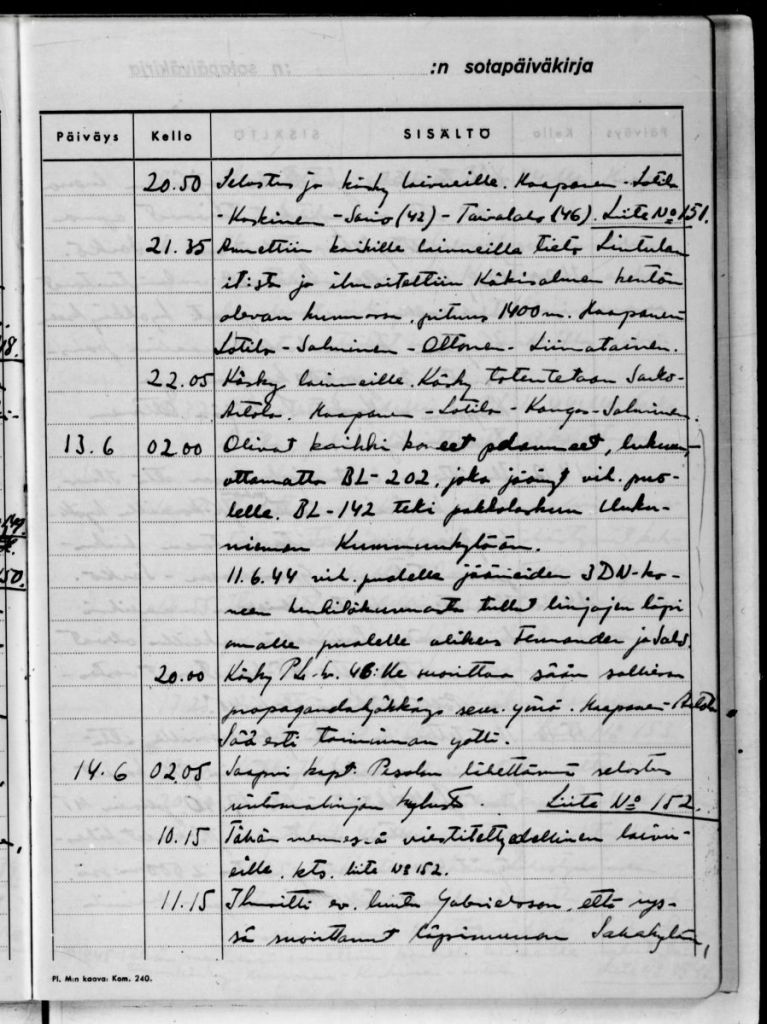 :n sotapäiväkirja
Päiväys Kello SISÄLTÖ
20.50 Selostus ja käsky laivueille. Haapanen - Lotila
- Koskinen - Sarvo (42) - Taivalalo (46). Liite No 151.
21.35 Annettiin kaikille laivueille tieto Lintulan
it:stä ja ilmoitettiin Käkisalmen kentän
olevan kunnossa, pituus 1400 m. Haapanen
Lotila - Salminen - Oltonen - Liimatainen.
22.05 Käsky laivueille. Käsky toteutetaan
Haapanen - Lotila - Kangas - Salminen.
13.6 02.00 Olivat kaikki koneet palanneet, lukuun-
ottamatta BL-202, joka jäänyt vih. puo-
lelle. BL-142 teki pakkolaskun Uuku-
niemen Kummunkylään.
11.6.44 vih. puolelle jääneiden 3 DN-ko-
neen henkilökunnasta tullut linjojen läpi
omalle puolelle alikers Fernander ja
20.00 Käsky P.Le.Lv. 46:lle suorittaa sään salliessa
propagandahyökkäys seur. yönä. Haapanen -
Sää esti toiminnan yöllä.
14.6 02.05 Saapui kapt. Pesolan lähettämä selostus
rintamalinjan kulusta. Liite No 152.
10.15 Tähän mennessä viestitetty edellinen laivu-
eille. kts. liite No 152.
11.15 Ilmoitti ev. luutn Gabrielsson, että rys-
sä suorittanut läpimurron
Pl. M:n kaava: Kom. 240.